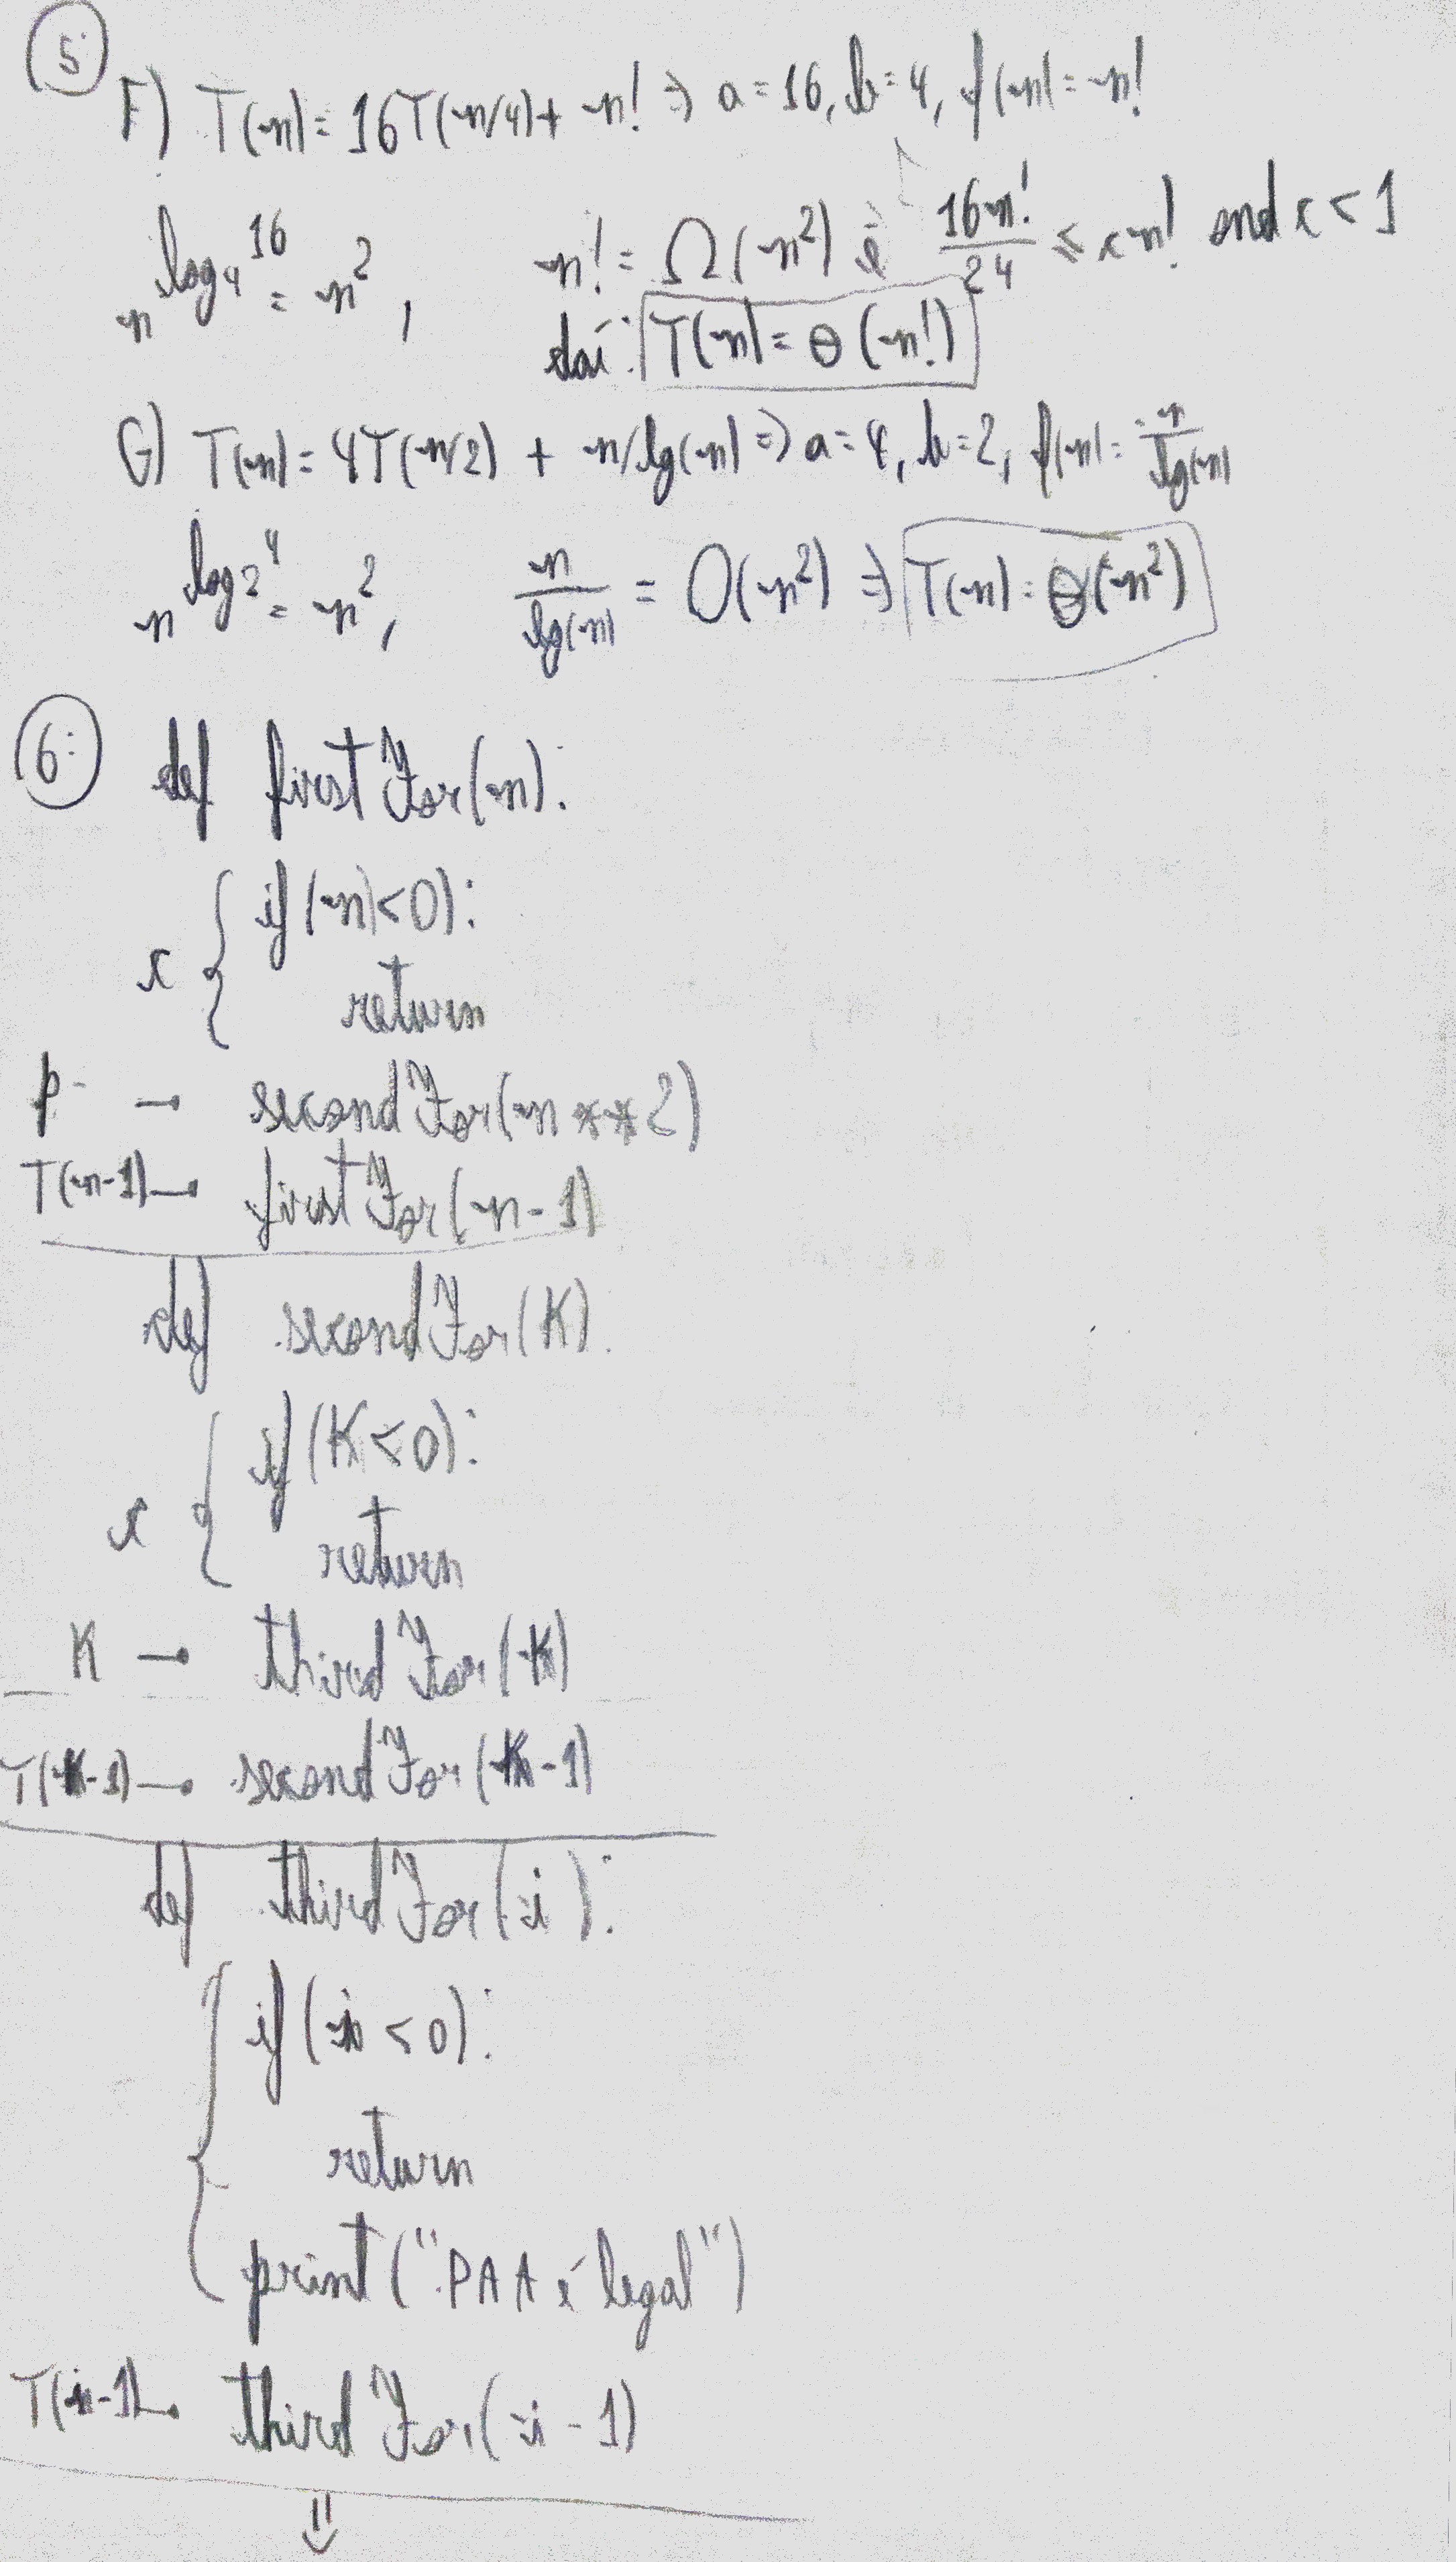 5:
F) T(n) = 16T(n/4) + n! => a = 16, b = 4, f(n) = n!
n^log₄16 = n², n! = Ω(n²) e 16n!/24 ≤ c n! and c < 1
daí: T(n) = Θ(n!)
G) T(n) = 4T(n/2) + n/lg(n) => a = 4, b = 2, f(n) = n/lg(n)
n^log₂4 = n², n/lg(n) = O(n²) => T(n) = Θ(n²)
6:
def firstFor(n):
c { if (n < 0):
return
p → secondFor(n**2)
T(n-1) → firstFor(n-1)
def secondFor(K):
c { if (K < 0):
return
K → thirdFor(K)
T(K-1) → secondFor(K-1)
def thirdFor(i):
{ if (i < 0):
return
print("PAA é legal")
T(i-1) → thirdFor(i-1)
⇓